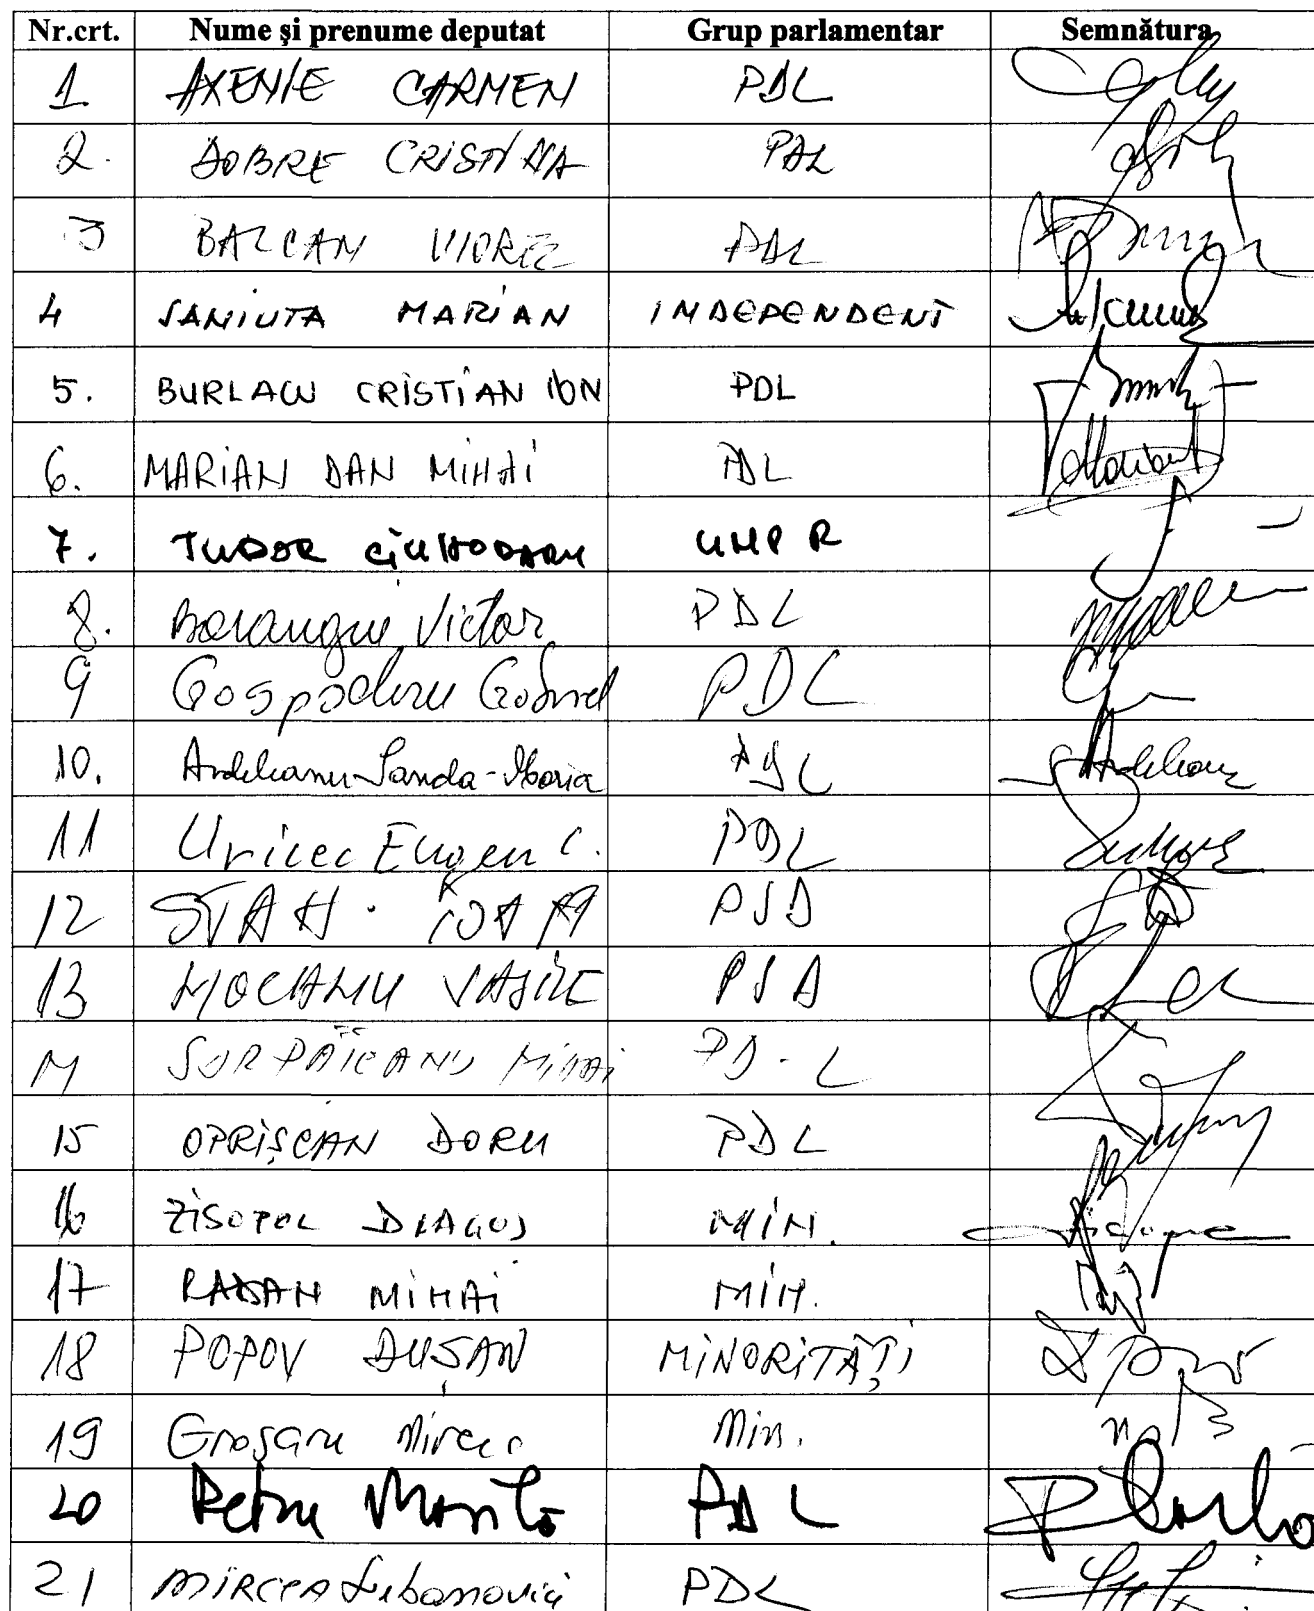 Nr.crt. Nume și prenume deputat Grup parlamentar Semnătura
1 AXENIE CARMEN PDL
2. DOBRE CRISTINA PDL
3 BALCAN VIOREL PDL
4 SANIUTA MARIAN INDEPENDENT
5. BURLACU CRISTIAN ION PDL
6. MARIAN DAN MIHAI PDL
7. TUDOR CIUHODARU UNPR
8. Boiangiu Victor PDL
9 Gospodaru Gabriel PDL
10. Ardeleanu Sanda-Maria PDL
11 Uricec Eugen C. PDL
12 STAN IOAN PSD
13 MOCANU VASILE PSD
14 SURPĂȚEANU MIHAI PD-L
15 OPRIȘCAN DORU PDL
16 ZISOPOL DRAGOȘ MIN.
17 RADAN MIHAI MIN.
18 POPOV DUȘAN MINORITĂȚI
19 Groșaru Mircea Min.
20 Petru PDL
21 MIRCEA Lubanovici PDL